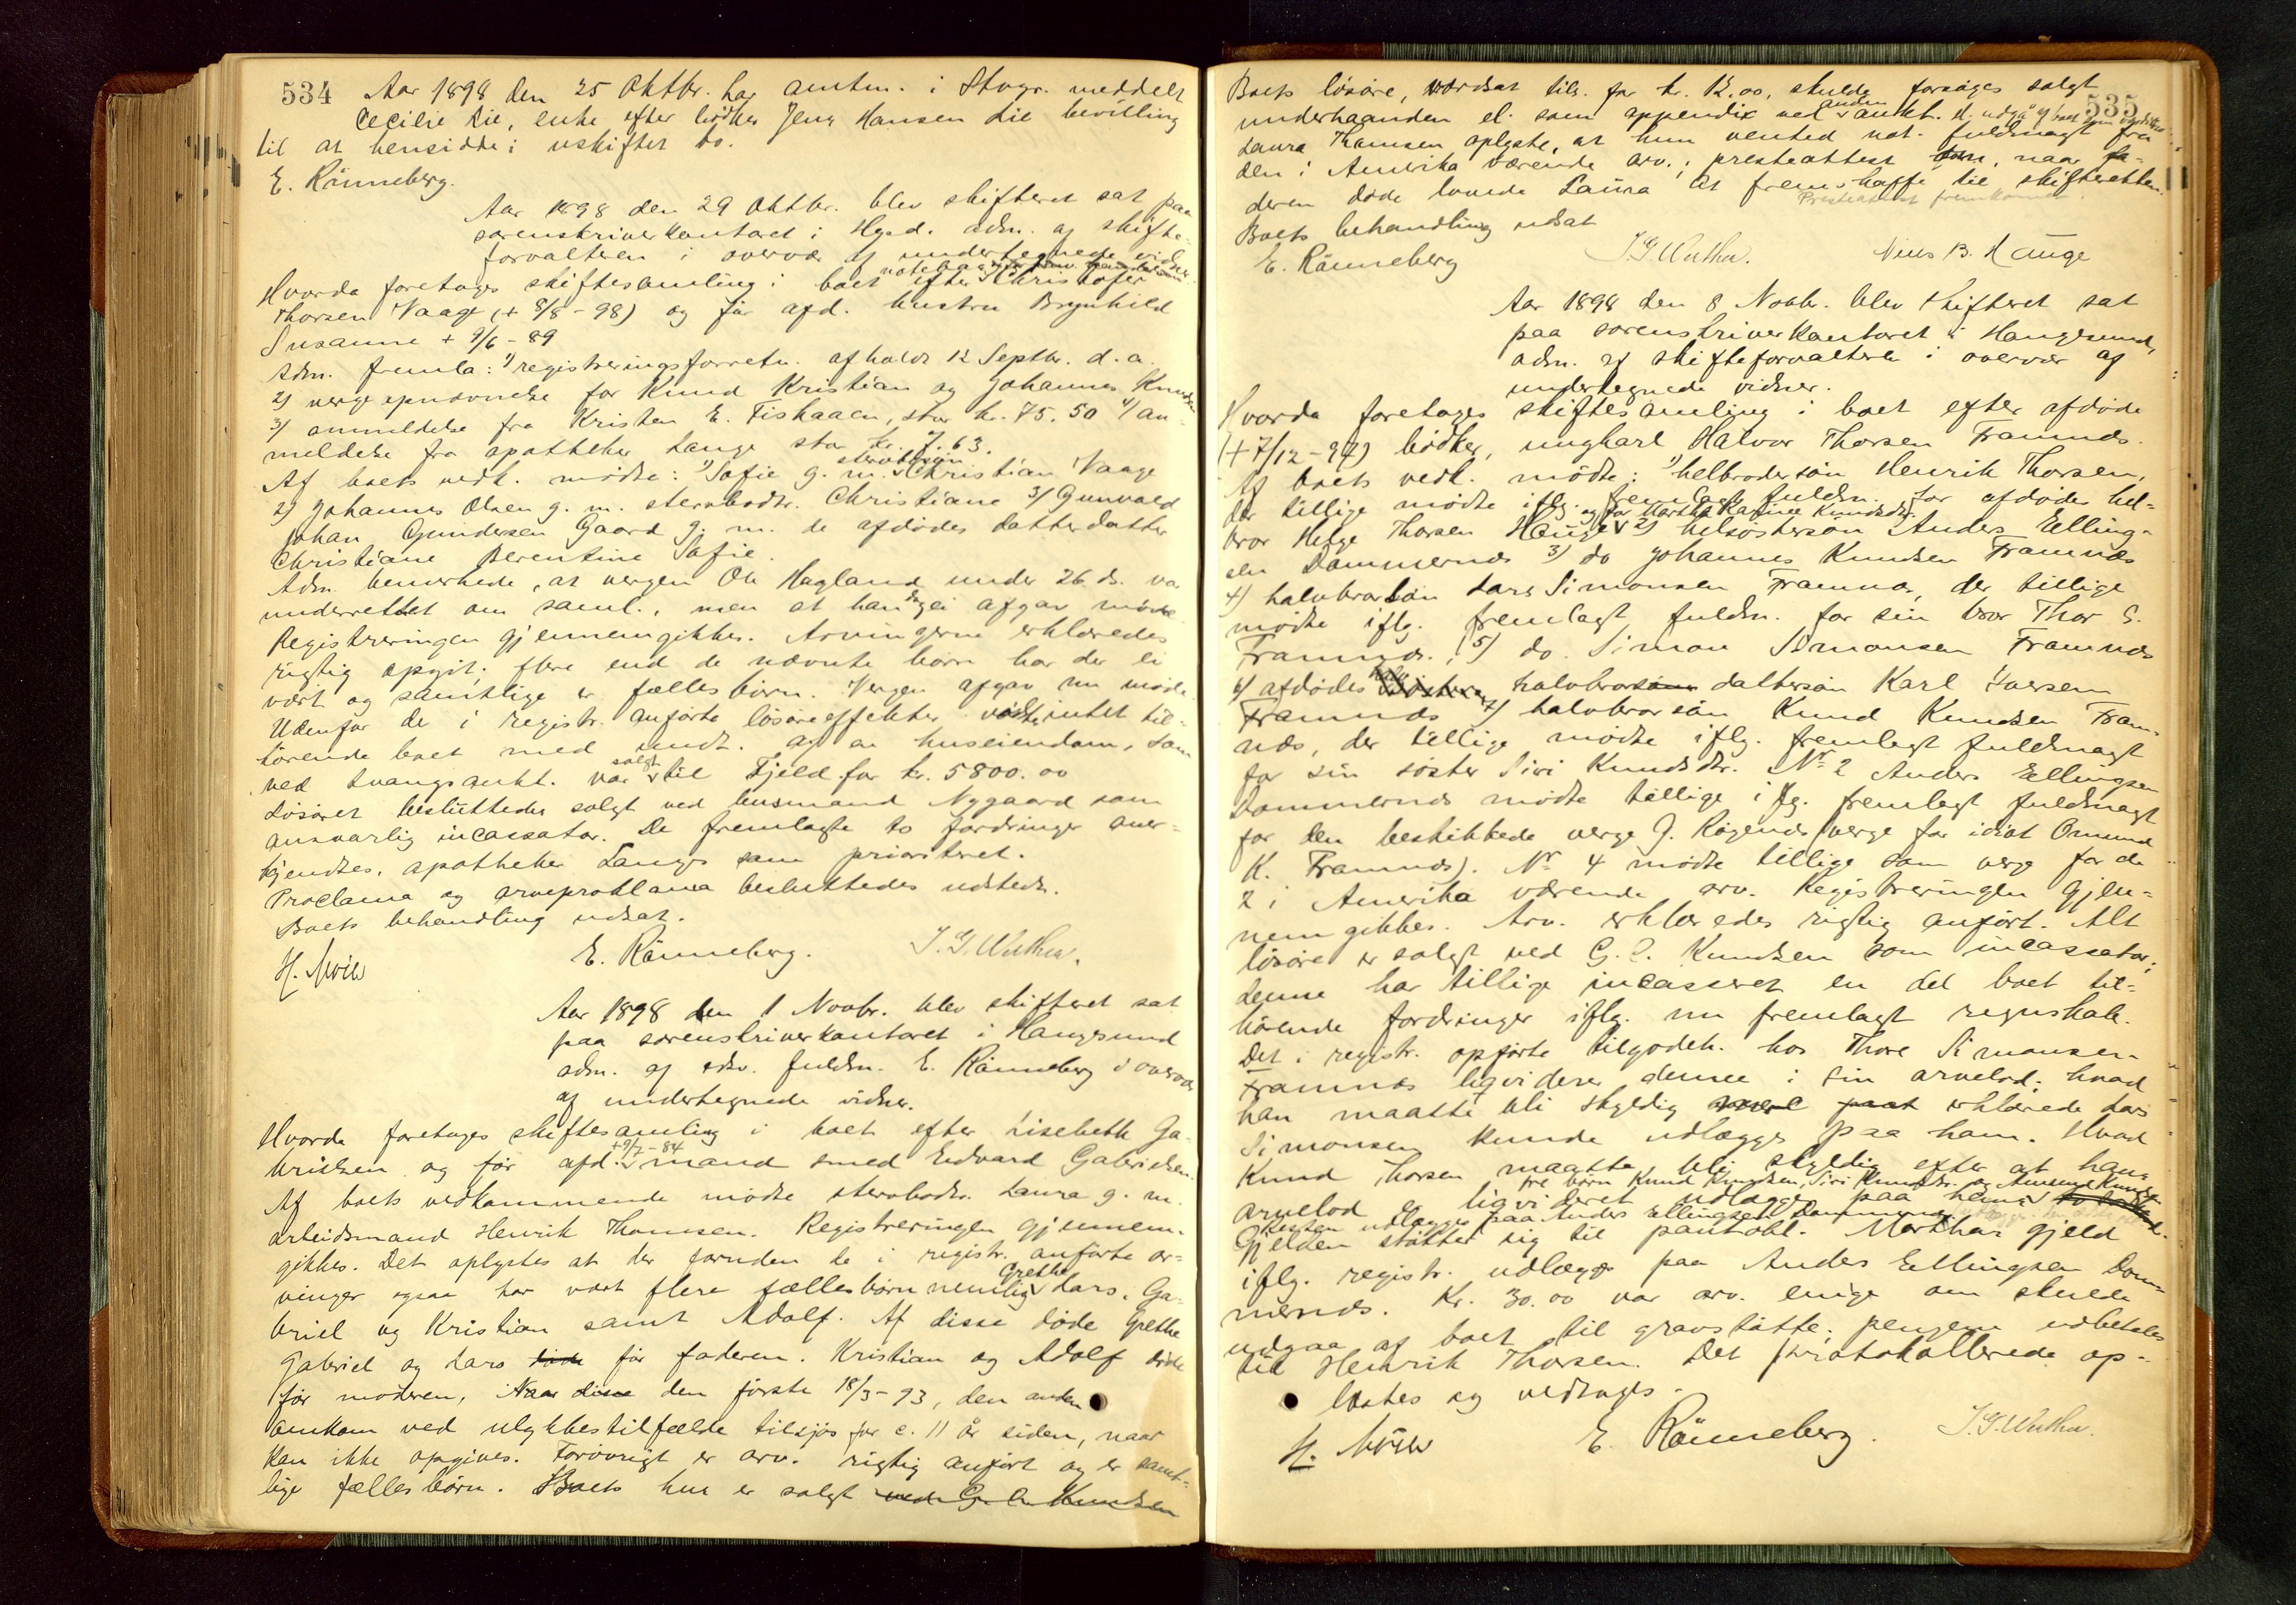 534
Aar 1898 den 25 Oktbr. har amtm. i Stvgr. meddelt
Cecilie Lie, enke efter bødker Jens Hansen Lie bevilling
til at hensidde i uskiftet bo.
E. Rönneberg.
Aar 1898 den 29 Oktbr. blev skifteret sat paa
sorenskriverkontoret i Hgsd. adm. af skifte-
forvalteren i overvær af undertegnede vidner
Hvorda foretages skiftesamling i boet efter Christofer
Thorsen Vaage (+ 8/8 - 98) og før afd. hustru Brynhild
Susanne + 9/6 - 89
Adm. fremla: 1) registreringsforretn. afholdt 12 Septbr. d. a.
2) vergeopnævnelse for Knud Kristian og Johannes Knudsen
3) anmeldelse fra Kristen E. Fiskaaen, stor kr. 75.50 4) an-
meldelse fra apotheker Lange stor kr. 7.63.
Af boets vedk. mødte: 1) Sofie g. m. stervbosøn Christian Vaage
2) Johannes Olsen g. m. stervbodtr. Christiane 3) Gunvald
Johan Gundersen Gaard g. m. de afdødes datterdatter
Christiane Berentine Sofie.
Adm. bemerkede, at vergen Ole Hagland under 26. ds. var
underrettet om saml., men at han ei afgav møde
Registreringen gjennemgikkes. Arvingerne erklæredes
rigtig opgit; flere end de nævnte børn har der ei
vært og samtlige er fælles børn. Vergen afgav nu møde
Udenfor de i registr. anførte løsøreeffekter vidste intet til-
hørende boet med undt. af en huseiendom, som
ved tvangsaukt. var solgt til Fjeld for kr. 5800.00
Løsøret besluttedes solgt ved lensmand Nygaard som
ansvarlig incassator. De fremlagte to fordringer aner-
kjendtes, apotheker Langes som prioriteret.
Proclama og arveproklama besluttedes udstedt.
Boets behandling udsat.
H. E. Rönneberg. J. G. Wuthu.
Aar 1898 den 1 Novbr. blev skifteret sat
paa sorenskriverkontoret i Haugesund
adm. af edsv. fuldm. E. Rönneberg i overvær
af undertegnede vidner.
Hvorda foretages skiftesamling i boet efter Lisebeth Ga-
brielsen og før afd. + 9/7 - 84 mand smed Edvard Gabrielsen.
Af boets vedkommende mødte stervbodtr. Laura g. m.
arbeidsmand Henrik Thomsen. Registreringen gjennem-
gikkes. Det oplystes at der foruden de i registr. anførte ar-
vinger ogsaa har vært flere fællesbørn nemlig Grethe Lars, Ga-
briel og Kristian samt Adolf. Af disse døde Grethe
Gabriel og Lars før faderen. Kristian og Adolf døde
før moderen, den første 18/3 - 93, den anden
omkom ved ulykkestilfælde tilsjøs for c. 11 år siden, naar
kan ikke opgives. Forøvrigt er arv. rigtig anført og er samt-
lige fælles børn. Boets hus er solgt ved G. Knudsen
535
Boets løsøre, værdsat tils. for kr. 12.00, skulde forsøges solgt
underhaanden el. som appendix ved anden aukt.
Laura Thomsen oplyste, at hun vented not. fuldmagt fra
den i Amerika værende arv.; presteattest, naar fa-
deren døde lovede Laura at fremskaffe til skifteretten.
Presteattest fremkommet.
Boets behandling udsat
E. Rönneberg J. G. Wuthu. Nils B. Hauge
Aar 1898 den 8 Novbr. blev skifteret sat
paa sorenskriverkontoret i Haugesund,
adm. af skifteforvalteren i overvær af
undertegnede vidner.
Hvorda foretages skiftesamling i boet efter afdøde
(+ 7/12 - 97) bødker, ungkarl Halvor Thorsen Framnæs.
Af boets vedk. mødte: 1) helbrodersøn Henrik Thorsen,
der tillige mødte iflg. fremlagte fuldm. for afdødes hel-
bror Helge Thorsen Hauge og for Martha Karine Knudsdtr. 2) helsøstersøn Anders Elling-
sen Dommernæs 3) do Johannes Knudsen Framnæs
4) halvbrorsøn Lars Simonsen Framnæs, der tillige
mødte iflg. fremlagt fuldm. for sin bror Thor S.
Framnæs. 5) do. Simon Simonsen Framnæs
6) afdødes halvbrors dattersøn Karl Iversen
Framnæs 7) halvbrorsøn Knud Knudsen Fram-
næs, der tillige mødte iflg. fremlagt fuldmagt
for sin søster Siri Knudsdtr. No 2 Anders Ellingsen
Dommernæs mødte tillige iflg. fremlagt fuldmagt
for den beskikkede verge J. Røgenæs (verge for idiot Omund
K. Framnæs). Nr 4 mødte tillige som verge for de
2 i Amerika værende arv. Registreringen gjen-
nemgikkes. Arv. erklæredes rigtig anført. Alt
løsøre er solgt ved G. C. Knudsen som incassator;
denne har tillige incasseret en del boet til-
hørende fordringer iflg. nu fremlagt regnskab.
Det i registr. opførte tilgodeh. hos Thore Simonsen
Framnæs liqviderer denne i sin arvelod; hvad
han maatte bli skyldig erklærede Lars
Simonsen kunde udlægges paa ham. Hvad
Knud Thorsen maatte bli skyldig efter at hans
arvelod er liqvideret udlægges paa hans tre børn Knud Knudsen, Siri Knudsdtr. og Amund Knudsen
Resten udlægges paa Anders Ellingsen Dommernæs
Gjælden støtter sig til pantobl. Marthas gjeld
iflg. registr. udlægges paa Anders Ellingsen Dom-
mernæs. Kr. 30.00 var arv. enige om skulde
udgaa af boet til gravstøtte; pengene udbetales
til Henrik Thorsen. Det protokollerede op-
læstes og vedtoges.
H. E. Rönneberg. J. G. Wuthu.